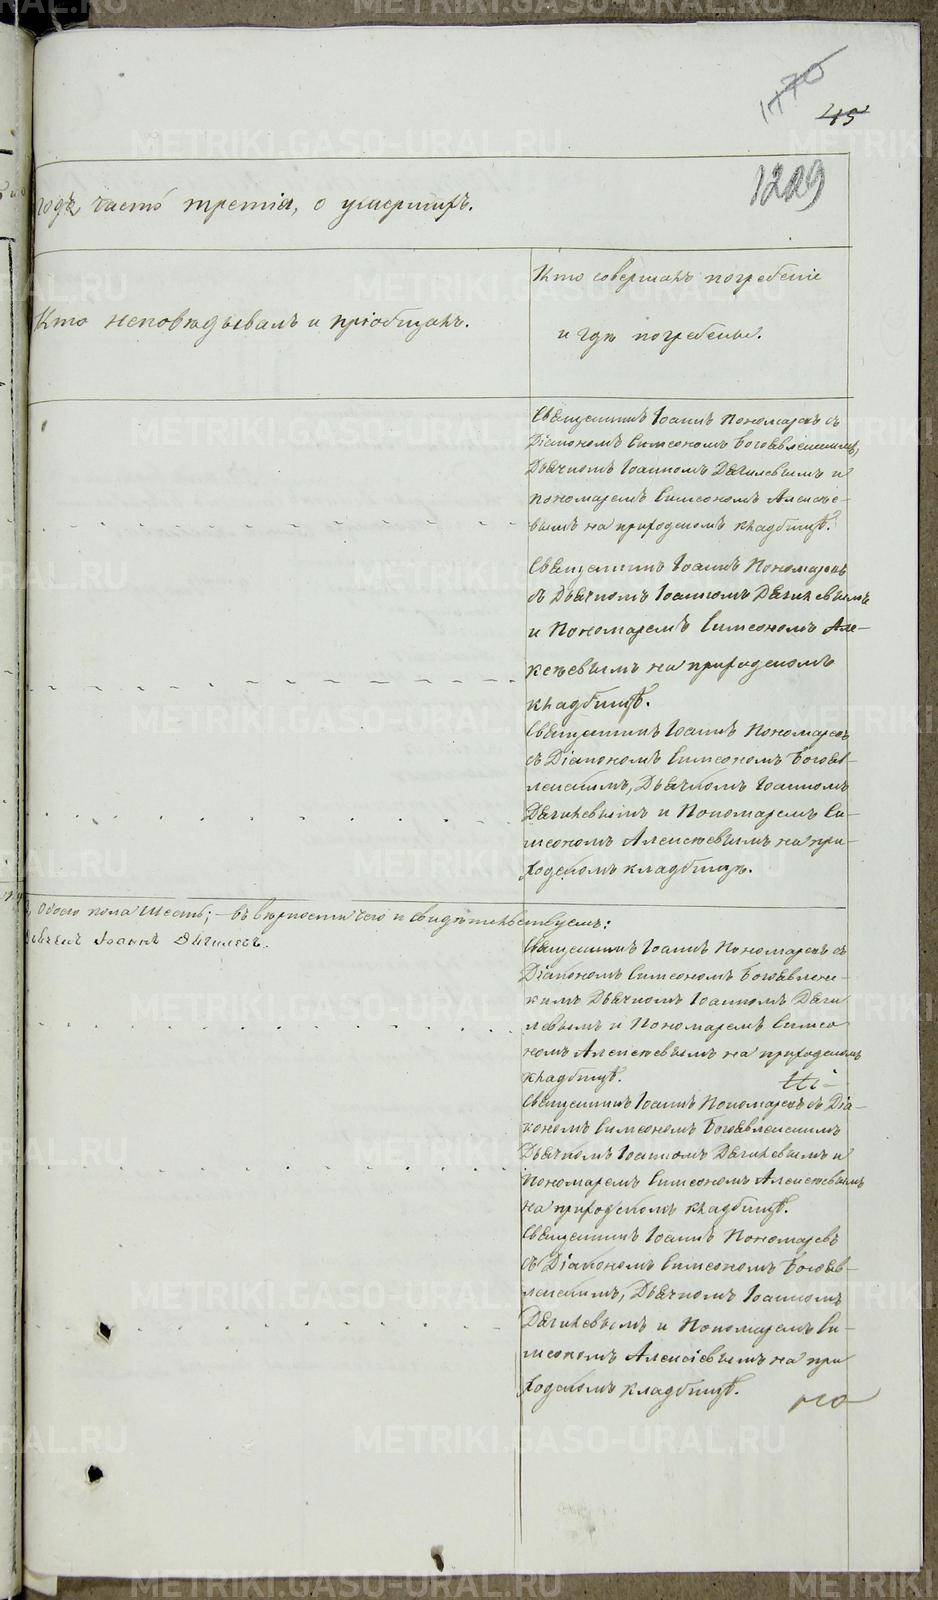 METRIKI.GASO-URAL.RU
1170
45
1229
годъ часть третія, о умершихъ.
Кто исповѣдывалъ и пріобщалъ.
Кто совершалъ погребеніе
и гдѣ погребены.
Священникъ Іоаннъ Пономаревъ съ
Діакономъ Симеономъ Богоявленскимъ,
Дьячкомъ Іоанномъ Дягилевымъ и
пономаремъ Симеономъ Алексѣе-
вымъ на приходскомъ кладбищѣ.
Священникъ Іоаннъ Пономаревъ
съ Дьячкомъ Іоанномъ Дягилевымъ
и Пономаремъ Симеономъ Але-
ксѣевымъ на приходскомъ
кладбищѣ.
Священникъ Іоаннъ Пономаревъ
съ Діакономъ Симеономъ Богояв-
ленскимъ, Дьячкомъ Іоанномъ
Дягилевымъ и Пономаремъ Си-
меономъ Алексѣевымъ на при-
ходскомъ кладбищѣ.
Обоего пола Шесть; – въ вѣрности чего и свидѣтельствуемъ:
Іоаннъ Дягилевъ.
Священникъ Іоаннъ Пономаревъ съ
Діакономъ Симеономъ Богоявленс-
кимъ Дьячкомъ Іоанномъ Дяги
левымъ и Пономаремъ Симео
номъ Алексѣевымъ на приходскомъ
кладбищѣ.
Священникъ Іоаннъ Пономаревъ съ Діа-
кономъ Симеономъ Богоявленскимъ
Дьячкомъ Іоанномъ Дягилевымъ и
Пономаремъ Симеономъ Алексѣевымъ
на приходскомъ кладбищѣ.
Священникъ Іоаннъ Пономаревъ
съ Діакономъ Симеономъ Богояв-
ленскимъ, Дьячкомъ Іоанномъ
Дягилевымъ и Пономаремъ Си-
меономъ Алексіевымъ на при
ходскомъ кладбищѣ.